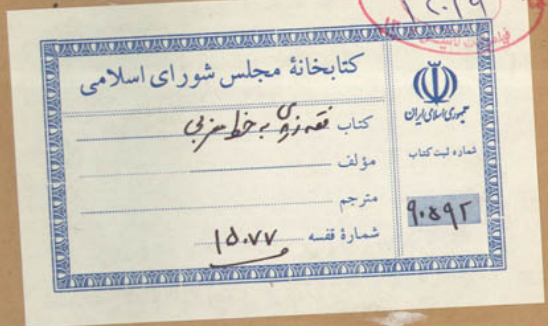 کتابخانهٔ مجلس شورای اسلامی
جمهوری اسلامی ایران
کتاب فقه به خط مغربی
مؤلف
مترجم
شمارهٔ قفسه ۱۵۰۷۷
شماره ثبت کتاب
۹۰۵۹۲